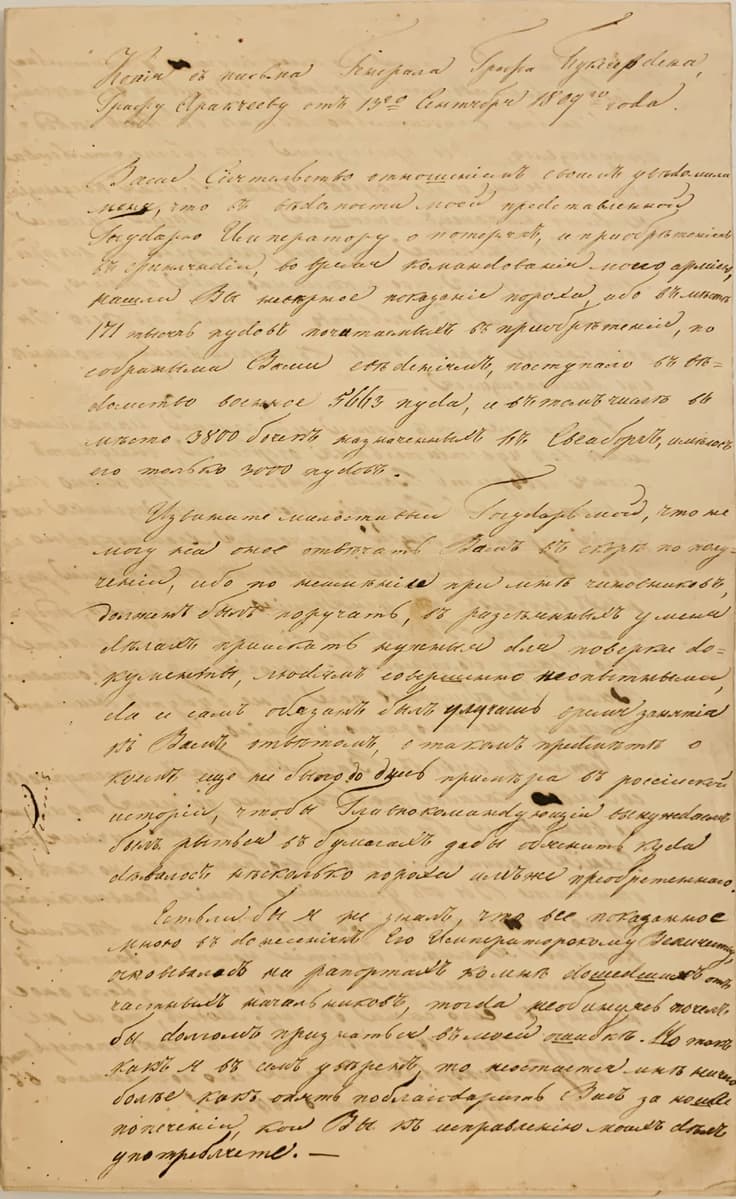 Копія съ письма Генерала Графа Буксгевдена,
Графу Аракчееву отъ 13го Сентября 1809го года.
Ваше Сіятельство отношеніемъ своимъ увѣдомили
меня, что въ вѣдомости моей представленной
Государю Императору о потерѣ, и пріобрѣтеніи
въ Финляндіи, во время командованія моего арміею,
нашли Вы невѣрное показаніе пороха, ибо вмѣсто
171 тысячь пудовъ почитаемыхъ въ пріобрѣтеніи, по
собраннымъ Вами свѣденіямъ, поступило въ вѣ-
домство военное 5663 пуда, и въ томъ числѣ въ
мѣсто 3800 бочекъ назначенныхъ въ Свеаборгѣ, имѣлось
его только 3000 пудовъ.
Извините милостивый Государь мой, что не
могу на оное отвѣчать Вамъ въ скорѣ по полу-
ченіи, ибо по неимѣнію при мнѣ чиновниковъ,
долженъ былъ поручать, въ разсѣянныхъ у меня
дѣлахъ пріискать нужныя для поверки до-
кументы, людямъ совершенно неопытнымъ,
да и самъ обязанъ былъ улучишь время занятія
къ Вамъ отвѣтомъ, о такомъ предмѣтѣ о
коемъ еще не было до днесь примѣра въ россійской
исторіи, чтобы Главнокомандующій вынужденъ
былъ рыться въ бумагахъ дабы объяснить куда
дѣвалось нѣсколько пороха имъ же пріобретеннаго.
Естьли бы я не зналъ, что все показанное
мною въ донесеніяхъ Его Императорскому Величеству,
основывалось на рапортахъ ко мнѣ дошедшихъ отъ
частныхъ начальниковъ, тогда необинуясь почелъ
бы долгомъ признаться въ моей ошибкѣ. Но такъ
какъ я въ семъ увѣренъ, то неостается мнѣ ничего
болѣе какъ опять поблагодарить Васъ за
попеченіи, кои Вы къ исправленію моихъ дѣлъ
употребляете. —